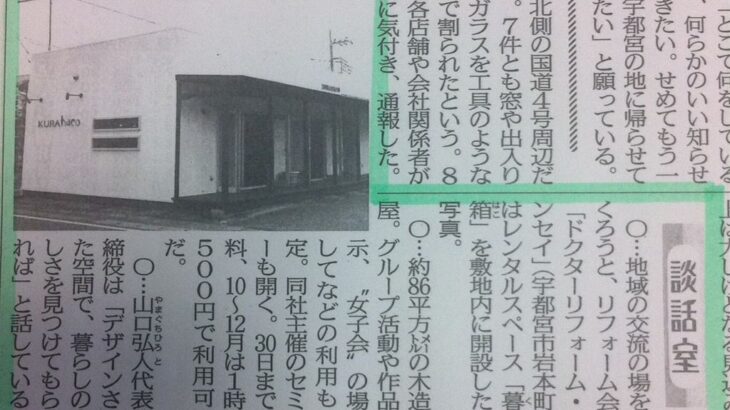 「どこで何をしている
、何らかのいい知らせ
きたい。せめてもう一
宇都宮の地に帰らせて
たい」と願っている。
北側の国道4号周辺だ
。7件とも窓や出入り
ガラスを工具のような
で割られたという。8
各店舗や会社関係者が
に気付き、通報した。
KURAhaco
談話室
〇…地域の交流の場を
くろうと、リフォーム会
「ドクターリフォーム・
ンセイ」(宇都宮市岩本町
はレンタルスペース「暮
箱」を敷地内に開設した
写真。
〇…約86平方㍍の木造
屋。グループ活動や作品
示、〝女子会〟の場
してなどの利用も
定。同社主催のセミ
ーも開く。30日まで
料、10〜12月は1時
500円で利用可
だ。
〇…山口弘人代表
締役は「デザインさ
た空間で、暮らしの
しさを見つけてもら
れば」と話している